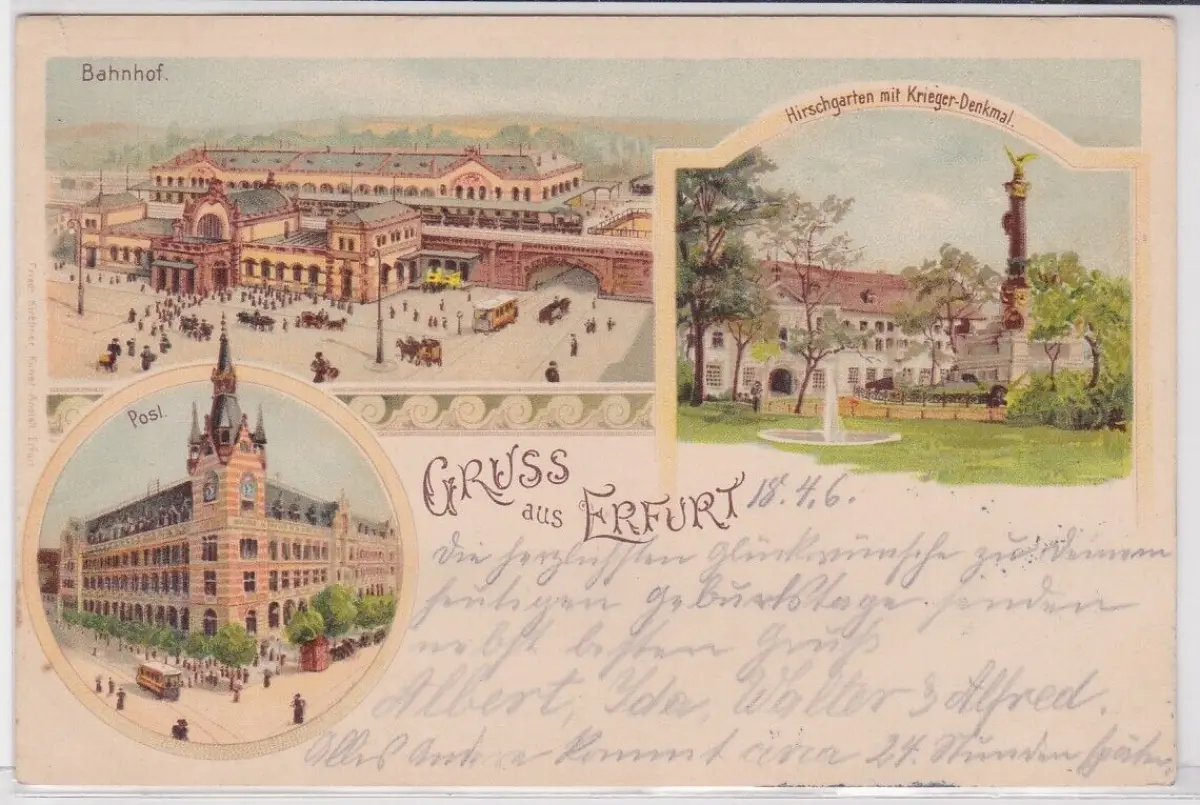 Bahnhof.
Hirschgarten mit Krieger-Denkmal.
Post.
GRUSS
aus ERFURT
18.4.6.
Die herzlichsten Glückwünsche zu Deinem
heutigen Geburtstage senden
nebst besten Gruß
Albert, Ida, Walter & Alfred.
Alles Andere kommt circa 24 Stunden später.
Erfurt